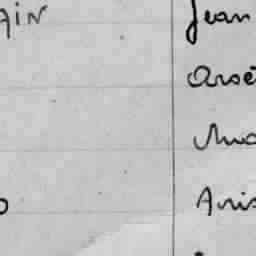 AIN Jean
Arsè
Ma
o Anis